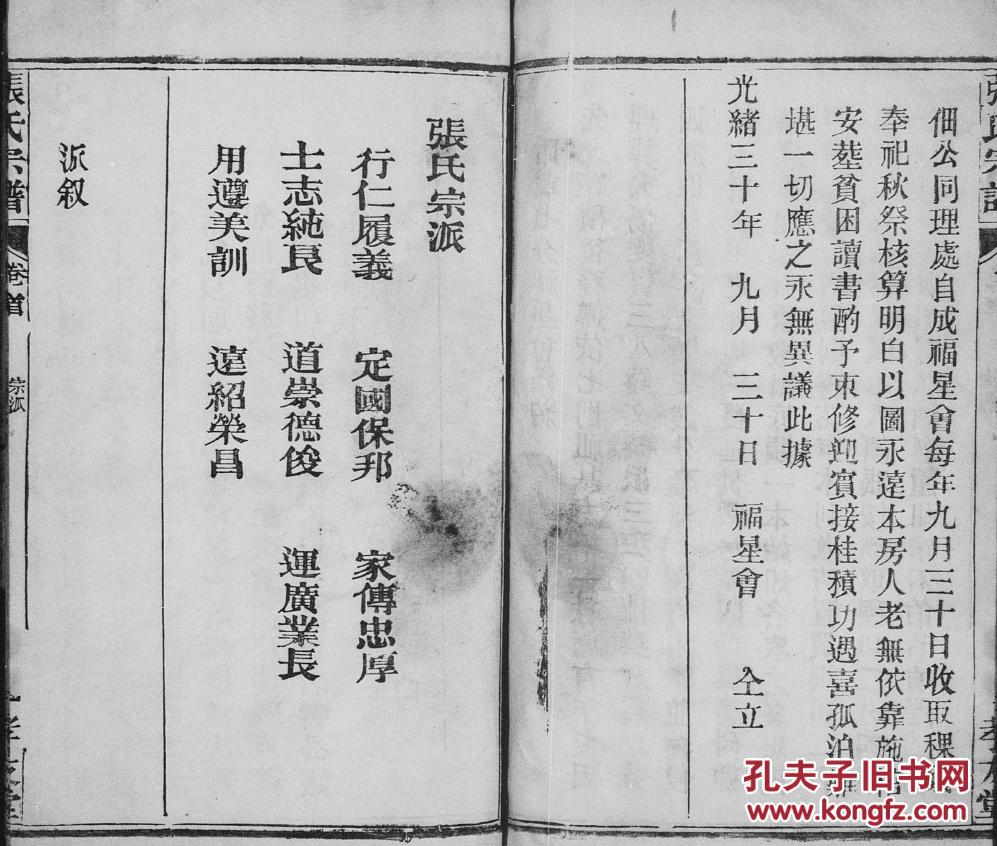 張氏宗譜
佃公同理處自成福星會每年九月三十日收取稞
奉祀秋祭核算明白以圖永遠本房人老無依靠施
安塟貧困讀書酌予束修迎賓接桂積功遇喜孤泊難
堪一切應之永無異議此據
光緒三十年 九月 三十日 福星會 仝立
張氏宗派
行仁履義 定國保邦 家傳忠厚
士志純良 道崇德俊 運廣業長
用遵美訓 遠紹榮昌
派叙
張氏宗譜 卷首 宗派
孔夫子旧书网
www.kongfz.com